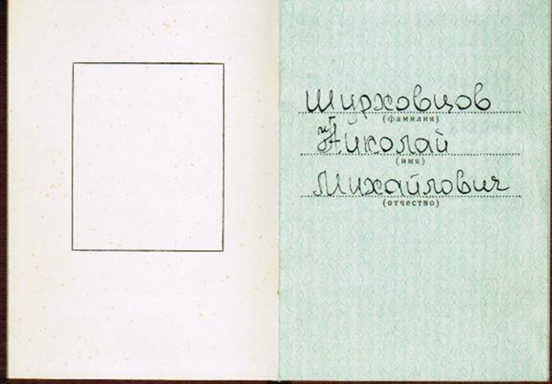 Широховцов
(фамилия)
Николай
(имя)
Михайлович
(отчество)